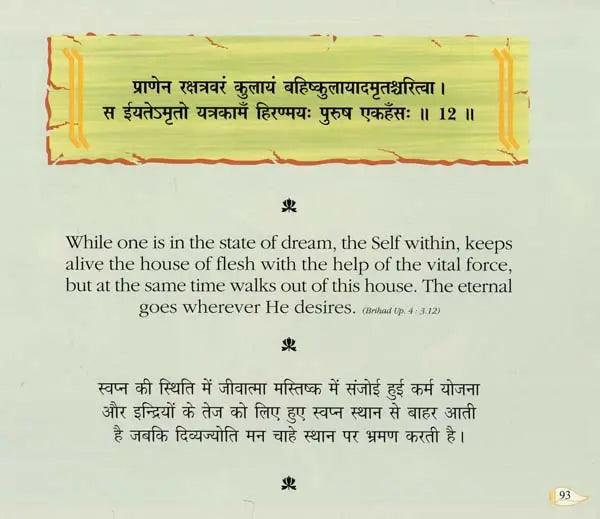 प्राणेन रक्षत्रवरं कुलायं बहिष्कुलायादमृतश्चरित्वा ।
स ईयतेऽमृतो यत्रकामँ हिरण्मयः पुरुष एकहँसः ॥ 12 ॥
While one is in the state of dream, the Self within, keeps
alive the house of flesh with the help of the vital force,
but at the same time walks out of this house. The eternal
goes wherever He desires. (Brihad Up. 4 : 3.12)
स्वप्न की स्थिति में जीवात्मा मस्तिष्क में संजोई हुई कर्म योजना
और इन्द्रियों के तेज को लिए हुए स्वप्न स्थान से बाहर आती
है जबकि दिव्यज्योति मन चाहे स्थान पर भ्रमण करती है।
93